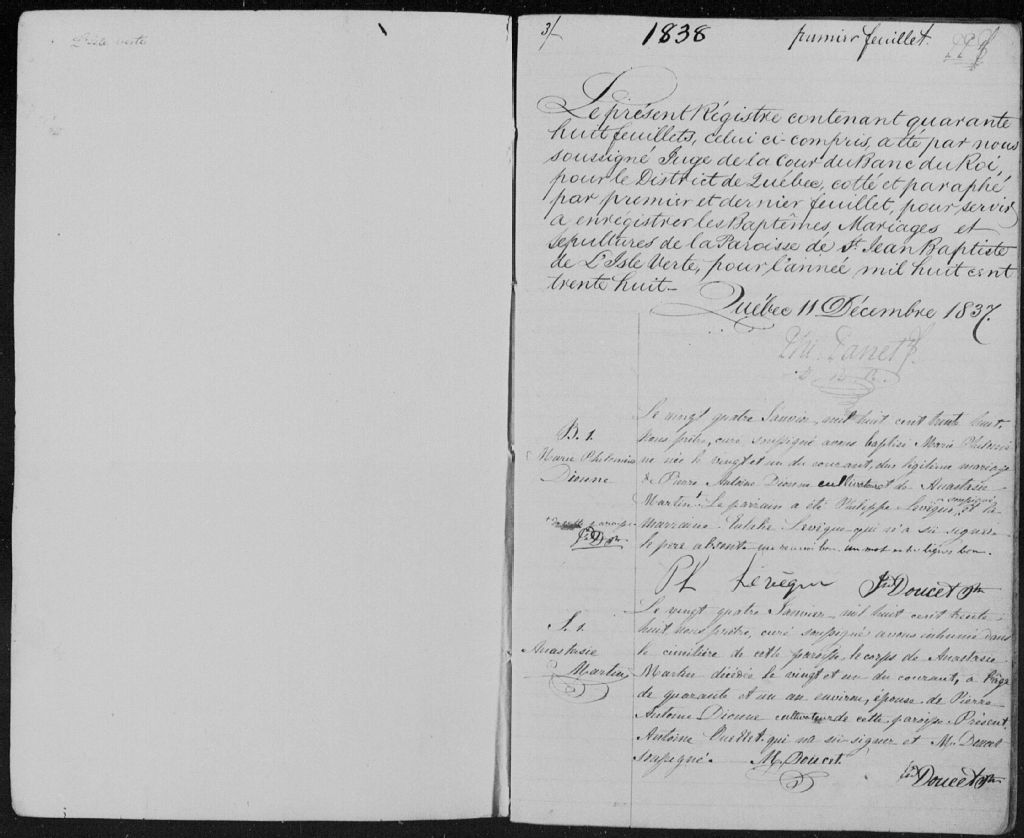 L'Isle verte
3/ 1838 premier feuillet.
Le présent Régistre contenant quarante
huit feuillets, celui ci-compris, a été par nous
soussigné Juge de la Cour du Banc du Roi,
pour le District de Québec, cotté et paraphé
par premier et dernier feuillet, pour servir
a enrégistrer les Baptêmes, Mariages et
Sépultures de la Paroisse de St. Jean Baptiste
de L'Isle Verte, pour l'année mil huit cent
trente huit—
Québec 11 Décembre 1837.
Phi. Panet J.
B. R.
B. 1.
Marie Philomène
Dionne
+ de cette paroisse
Jh. D. Ptre
Le vingt quatre Janvier, mil huit cent trente huit,
Nous prêtre, curé, soussigné avons baptisé Marie Philomè-
ne née le vingt et un du courant, du légitime mariage
de Pierre Antoine Dionne cultivateur et de Anastasie
Martin+ Le parrain a été Philippe Levêque soussigné, et la
marraine Levêque qui n'a su signer
le père absent. un renvoi bon. un mot bon.
Ph Levêque Jh. Doucet Ptre
S. 1.
Anastasie
Martin
Le vingt quatre Janvier mil huit cent trente
huit nous prêtre, curé soussigné avons inhumé dans
le cimetière de cette paroisse, le corps de Anastasie
Martin décédée le vingt et un du courant, a l'age
de quarante et un an environ, épouse de Pierre
Antoine Dionne cultivateur de cette paroisse Présent
Antoine Ouellet qui n'a su signer et M. Doucet
soussigné. M. Doucet
Jh. Doucet Ptre